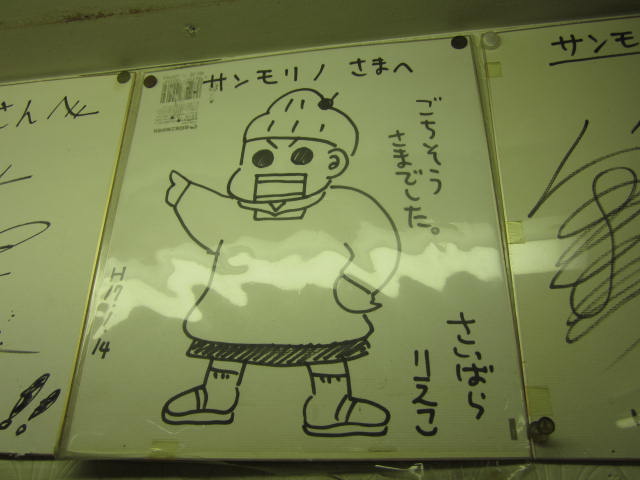 サンモリノ さまへ
ごちそう
さまでした。
さいばら
りえこ
H17.
14
さんへ
!!
サンモ